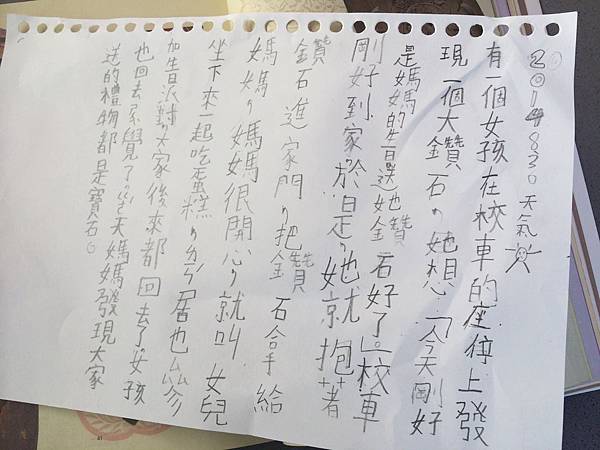 2014 830 天氣
有一個女孩在校車的座位上發
現一個大鑽石,她想「今天剛好
是媽媽的生日送她鑽石好了。」校車
剛好到家於是,她就抱著
鑽石進家門,把鑽石合手給
媽媽,媽媽很開心,就叫女兒
坐下來一起吃蛋糕,ㄌㄧㄣ居也ㄙ参
加生日派對,大家後來都回去了女孩
也回去睡覺了,ㄗㄨㄟ天媽媽發現大家
送的禮物都是寶石。